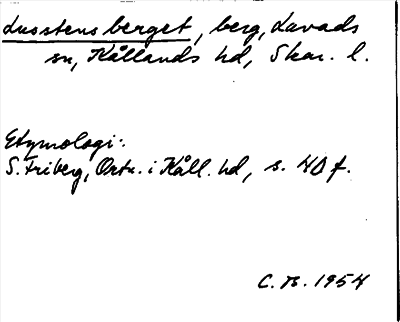 Lusstensberget, berg, Lavads
sn, Kållands hd, Skar. l.
Etymologi:
S. Friberg, Ortn. i Kåll. hd, s. 40 f.
C. B. 1954